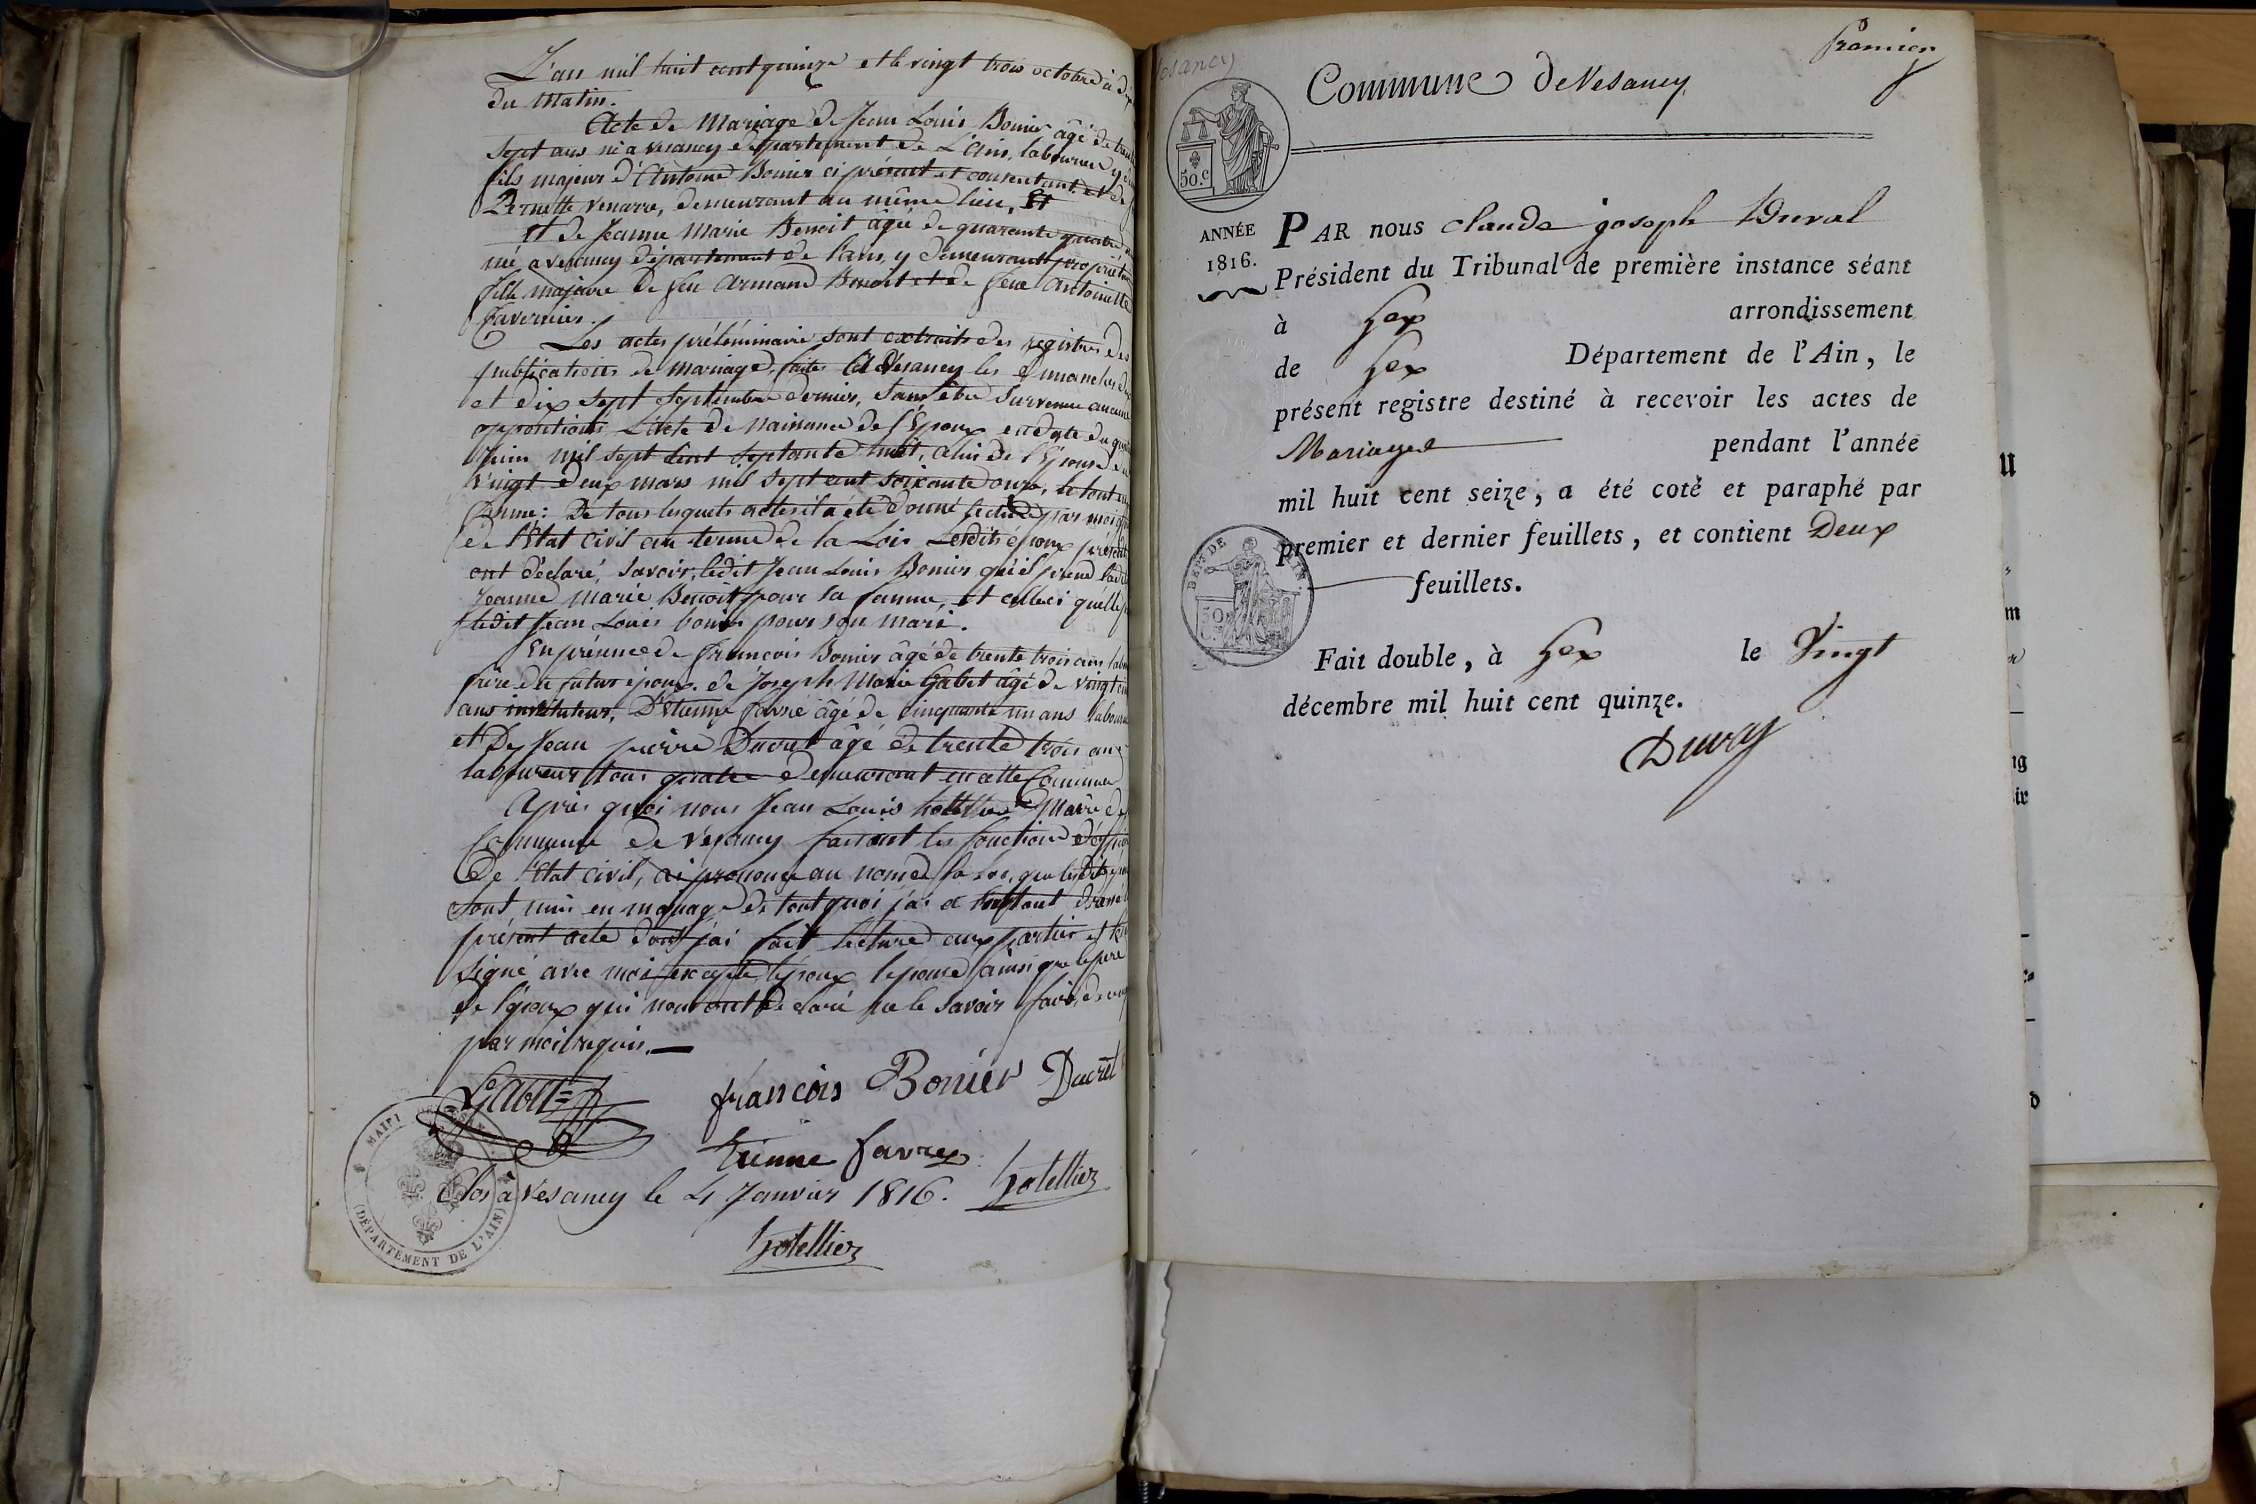 L'an mil huit cent quinze et le vingt trois octobre à dix
du Matin.
Acte de Mariage de Jean Louis Bonier âgé de trente
sept ans né a vesancy département de L'Ain, laboureur y
fils majeur d'Antoine Bonier ci présent et consentant et de
Pernette Venarre, demeurant au même lieu, Et
et de Jeanne Marie Benoit âgée de quarante quatre
née a vesancy département de l'ain, y demeurant propriétaire
fille majeure de feu Armand Benoit et de feue Antoinette
favernier.
Les actes préléminaire sont extraits des registres des
publications de mariage, faites A Vésancy les dimanches
et dix sept septembre dernier, sans être survenue aucune
oppositions L'acte de Naissance de l'Époux en date du
juin mil sept cent septante huit, celui de l'Épouse du
vingt deux mars mil sept cent soixante onze, le tout en
forme: De tous lesquels actes il a été donné lecture par moi
de l'État civil au terme de la Loi. Lesdits époux présents
ont déclaré, savoir, ledit Jean Louis Bonier qu'il prend ladite
Jeanne Marie Benoit pour sa famme, et celleci quelle
ledit Jean Louis bonier pour son mari.
En présence de françois Bonier âgé de trente trois ans
frère du futur époux. de Joseph Marie Gabet âgé de vingt
ans instituteur, D'Etienne favre âgé de cinquante un ans laboureur
et De Jean pierre Ducret âgé de trente trois ans
laboureur tous quatre demeurant en cette Commune
Après quoi nous Jean Louis hotellier Maire de
Commune de Vesancy faisant les fonction d'officier
De l'État civil, ai prononcé au nom de la Loi, que lesdits
sont unis en mariage de tout quoi j'ai a l'instant dressé
présent acte dont j'ai fait lecture aux parties et
signé avec moi excepté l'époux lepouse ainsi que le pere
de l'époux qui nous ont déclaré ne le savoir faire, de ce
par moi requis.
Gabet
françois Bonier Ducret
Etienne favre
Clos à Vesancy le 4 Janvier 1816. hotellier
hotellier
MAIRI DE VESAN
(DÉPARTEMENT DE L'AIN)
Premier
Commune de Vesancy
50.c
ANNÉE
1816.
PAR nous claude joseph Duval
Président du Tribunal de première instance séant
à Gex arrondissement
de Gex Département de l'Ain, le
présent registre destiné à recevoir les actes de
Mariages pendant l'année
mil huit cent seize, a été coté et paraphé par
premier et dernier feuillets, et contient Deux
feuillets.
DEPT DE L'AIN
50 C.
Fait double, à Gex le Vingt
décembre mil huit cent quinze.
Duval